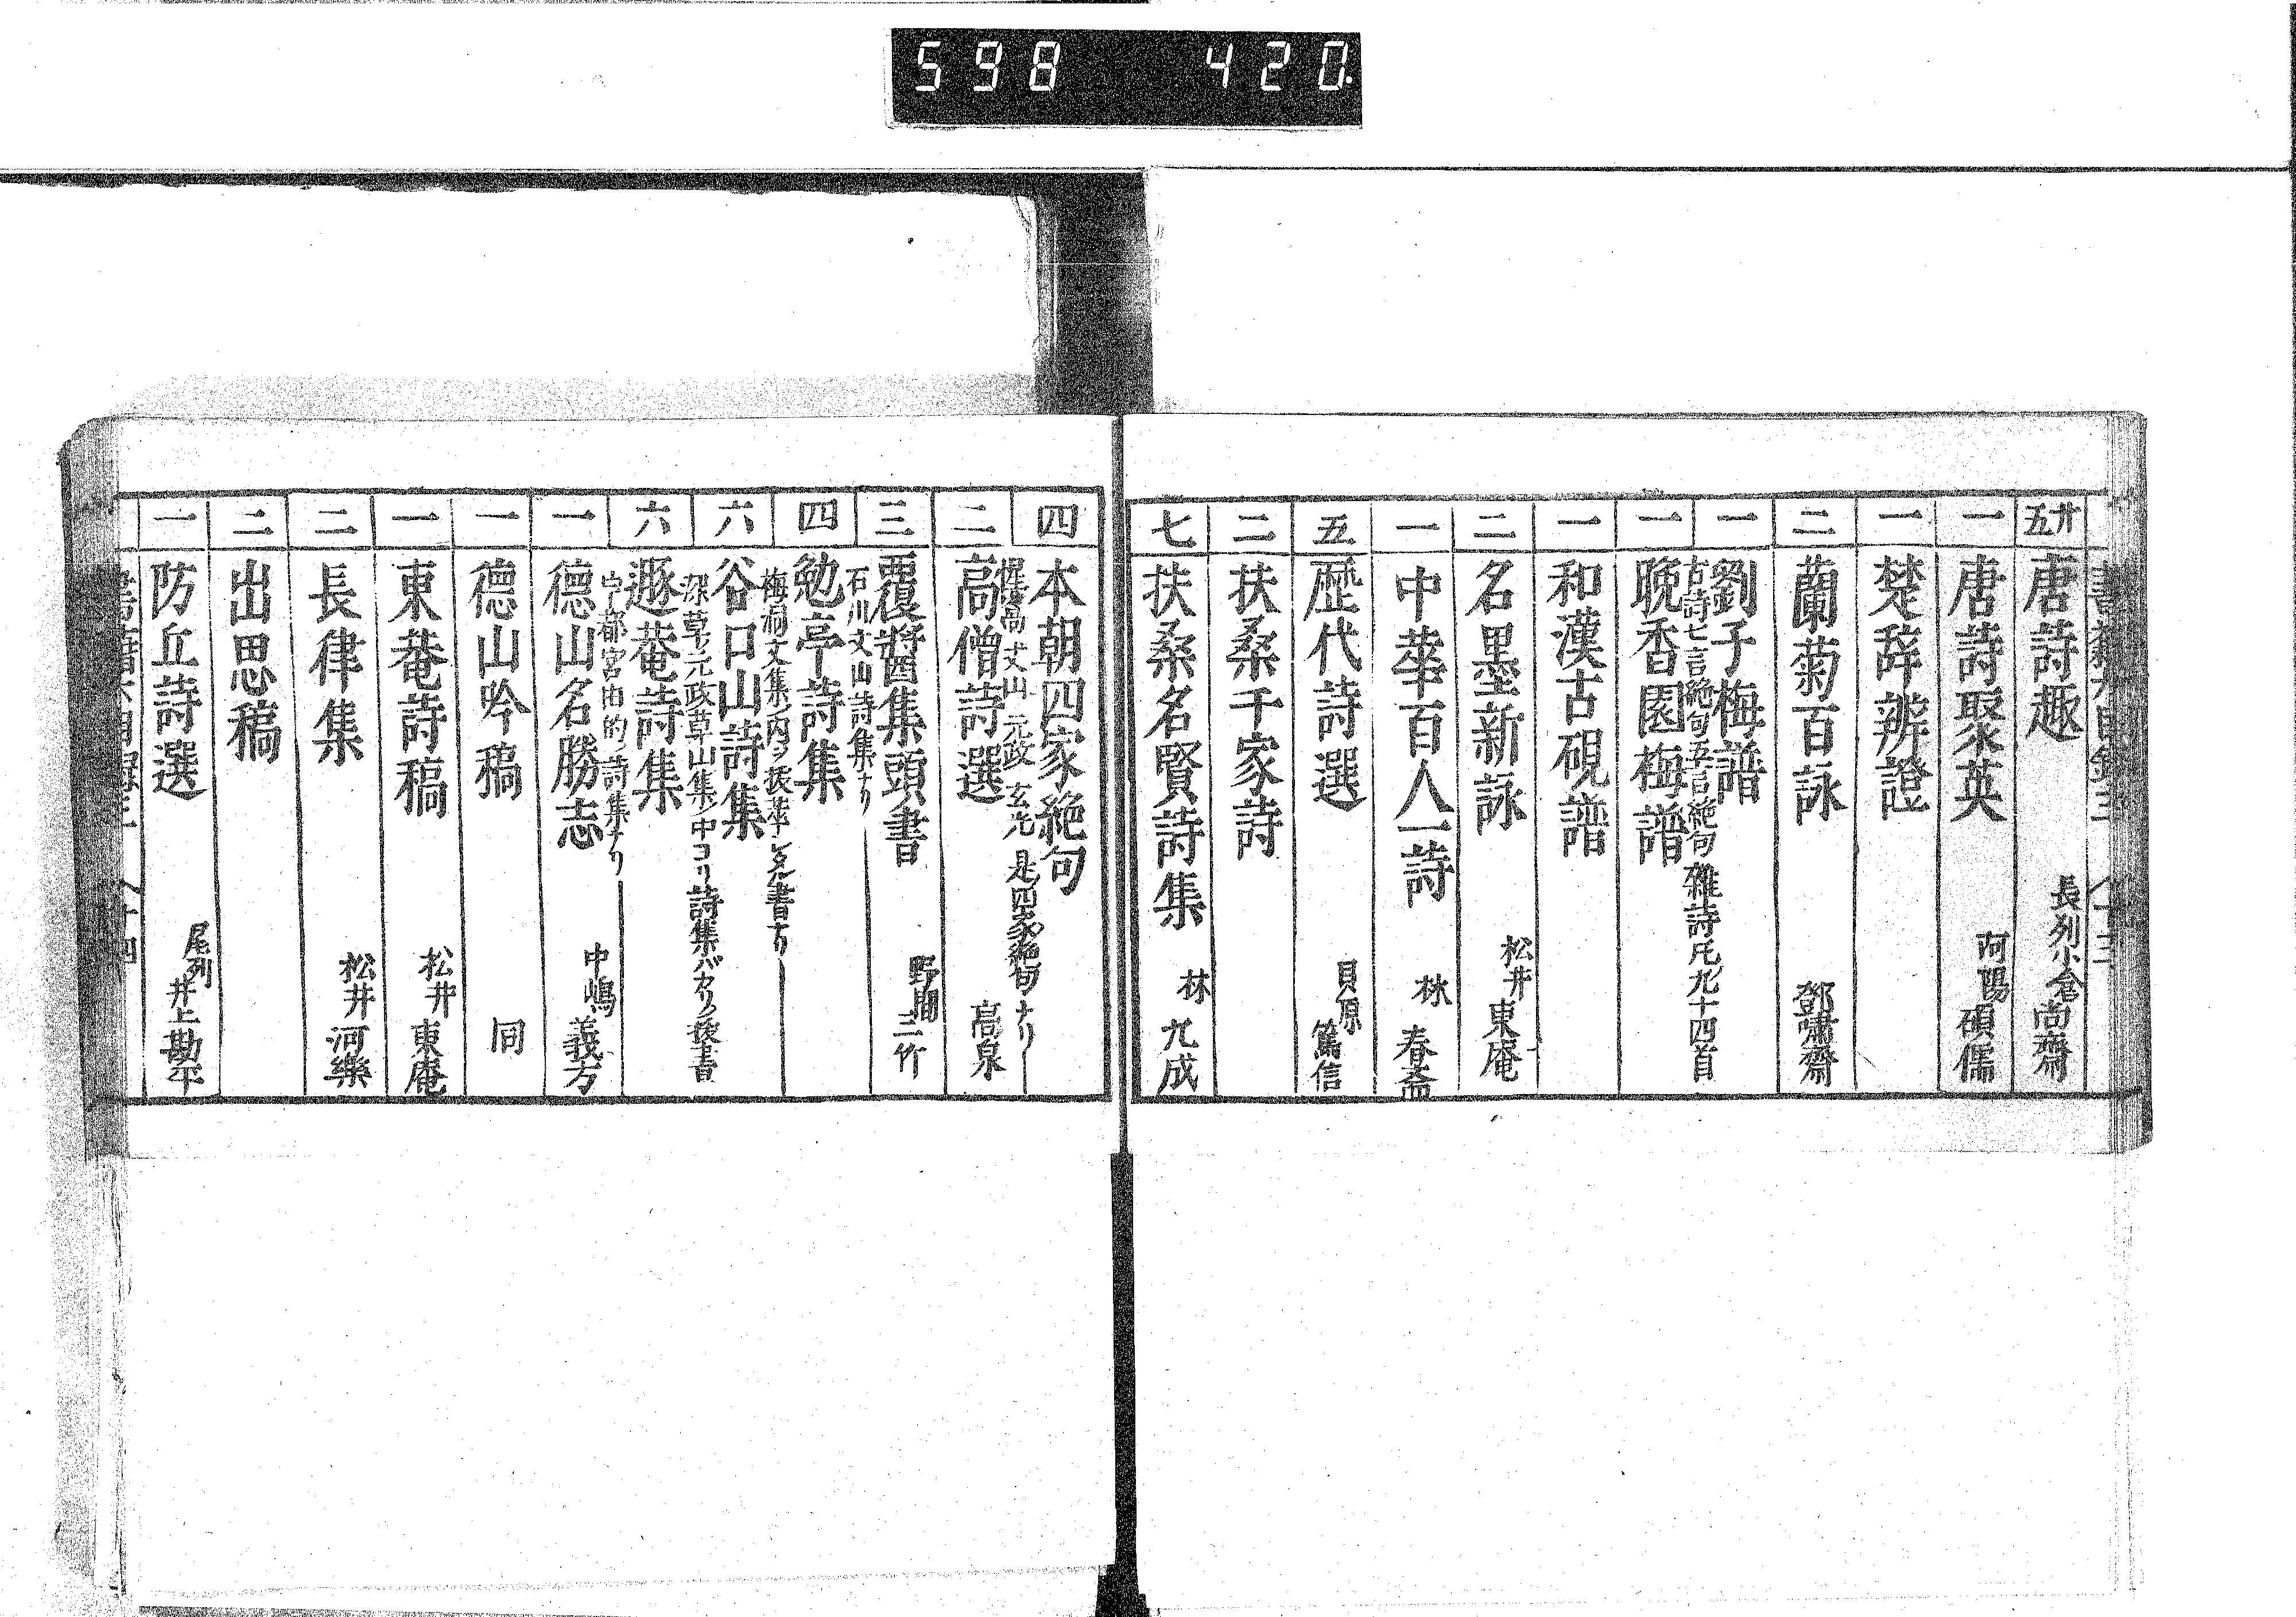 598 420.
廿五 唐詩趣 長列小倉尚齋
一 唐詩聚英 阿陽碩儒
一 楚辞辨證
二 蘭菊百詠 鄧嘯齋
一 劉子梅譜
古詩七言絶句五言絶句雜詩凡九十四首
一 晩香園梅譜
一 和漢古硯譜
二 名墨新詠 松井東庵
一 中華百人一詩 林春斎
五 歴代詩選 貝原篤信
二 扶桑千家詩
七 扶桑名賢詩集 林九成
四 本朝四家絶句
惺窩 丈山 元政 玄光 是四家ノ絶句ナリ
二 高僧詩選 高泉
三 覆醬集頭書 野間三竹
石川丈山詩集ナリ
四 勉亭詩集
梅洞文集ノ内ヲ抜萃シタル書ナリ
六 谷口山詩集
深草ノ元政草山集ノ中ヨリ詩集バカリヲ抜書
六 遯菴詩集
宇都宮由的ノ詩集ナリ
一 德山名勝志 中嶋義方
一 德山吟稿 同
一 東菴詩稿 松井東庵
二 長律集 松井河樂
二 出思稿
一 防丘詩選 尾列井上勘平